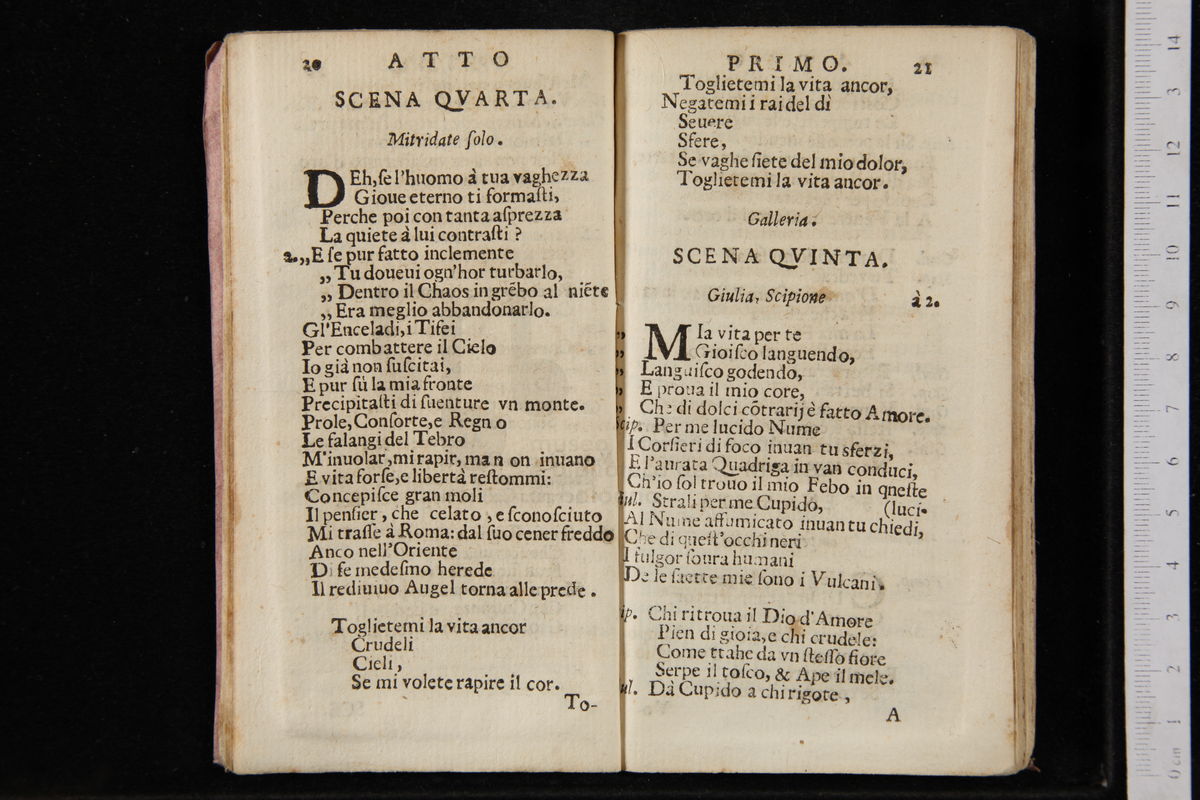 20 ATTO
SCENA QVARTA.
Mitridate ſolo.
DEh, ſe l'huomo à tua vaghezza
Gioue eterno ti formaſti,
Perche poi con tanta aſprezza
La quiete à lui contraſti ?
2. „E ſe pur fatto inclemente
„ Tu doueui ogn'hor turbarlo,
„ Dentro il Chaos in grẽbo al niẽte
„ Era meglio abbandonarlo.
Gl'Enceladi, i Tifei
Per combattere il Cielo
Io già non ſuſcitai,
E pur sù la mia fronte
Precipitaſti di ſuenture vn monte.
Prole, Conſorte, e Regno
Le falangi del Tebro
M'inuolar, mi rapir, ma non inuano
E vita forſe, e libertà reſtommi:
Concepiſce gran moli
Il penſier, che celato, e ſconoſciuto
Mi traſſe à Roma: dal ſuo cener freddo
Anco nell'Oriente
Di ſe medeſmo herede
Il rediuiuo Augel torna alle prede.
Toglietemi la vita ancor
Crudeli
Cieli,
Se mi volete rapire il cor.
To-
PRIMO. 21
Toglietemi la vita ancor,
Negatemi i rai del dì
Seuere
Sfere,
Se vaghe ſiete del mio dolor,
Toglietemi la vita ancor.
Galleria.
SCENA QVINTA.
Giulia, Scipione à 2.
„ MIa vita per te
„ Gioiſco languendo,
„ Languiſco godendo,
„ E proua il mio core,
„ Che di dolci cõtrarij è fatto Amore.
Scip. Per me lucido Nume
I Corſieri di foco inuan tu sferzi,
E l'aurata Quadriga in van conduci,
Ch'io ſol trouo il mio Febo in qneſte
ul. Strali per me Cupido, (luci.
Al Nume affumicato inuan tu chiedi,
Che di queſt'occhi neri
I fulgor ſoura humani
De le ſaette mie ſono i Vulcani.
ip. Chi ritroua il Dio d'Amore
Pien di gioia, e chi crudele:
Come ttahe da vn ſteſſo fiore
Serpe il toſco, & Ape il mele.
ul. Dà Cupido a chi rigote,
A